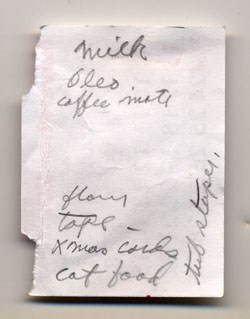 milk
Oleo
coffee mate
flour
tape
Xmas cards
cat food